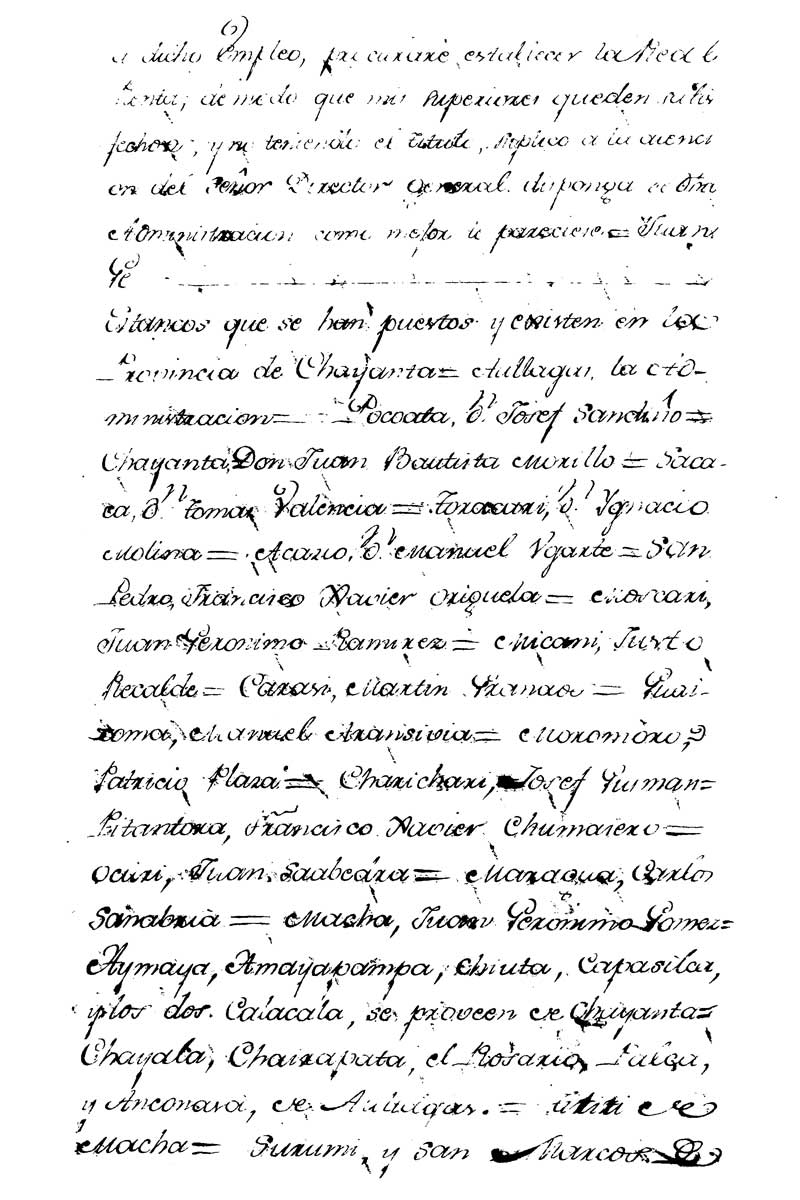 dicho Empleo, procuraré establecer la Real
Renta; de modo que mis superiores queden satis
fechos, y no teniendo el titulo, suplico a la atenci
on del Señor Director General disponga de dha
Administracion como mejor le pareciere = Juan
Ge
Estancos que se han puestos y existen en la
Provincia de Chayanta = Aullagas, la Ad-
ministracion = Pocoata, Dn. Josef Sandino =
Chayanta, Don Juan Bautista Morillo = Saca-
ca, Dn. Tomas Valencia = Toracari, Dn. Ygnacio
Molina = Acacio, Dn. Manuel Ugarte = San
Pedro, Francisco Xavier Origuela = Moscari,
Juan Geronimo Ramirez = Micani, Justo
Recalde = Carasi, Martin Granado = Guai-
coma, Manuel Aransivia = Moromoro,
Patricio Plaza = Charichari, Josef Gusman =
Pitantora, Francisco Xavier Chumacero =
Ocuri, Juan Saabedra = Maragua, Carlos
Sanabria = Macha, Juan Geronimo Gomez =
Aymaya, Amayapampa, Chiuta, Capasilar,
y los dos Calacala, se proveen de Chayanta =
Chayala, Chairapata, el Rosario, Palca,
y Anconasa, de Aullagas. = Titiri de
Macha = Surumi, y San Marcos